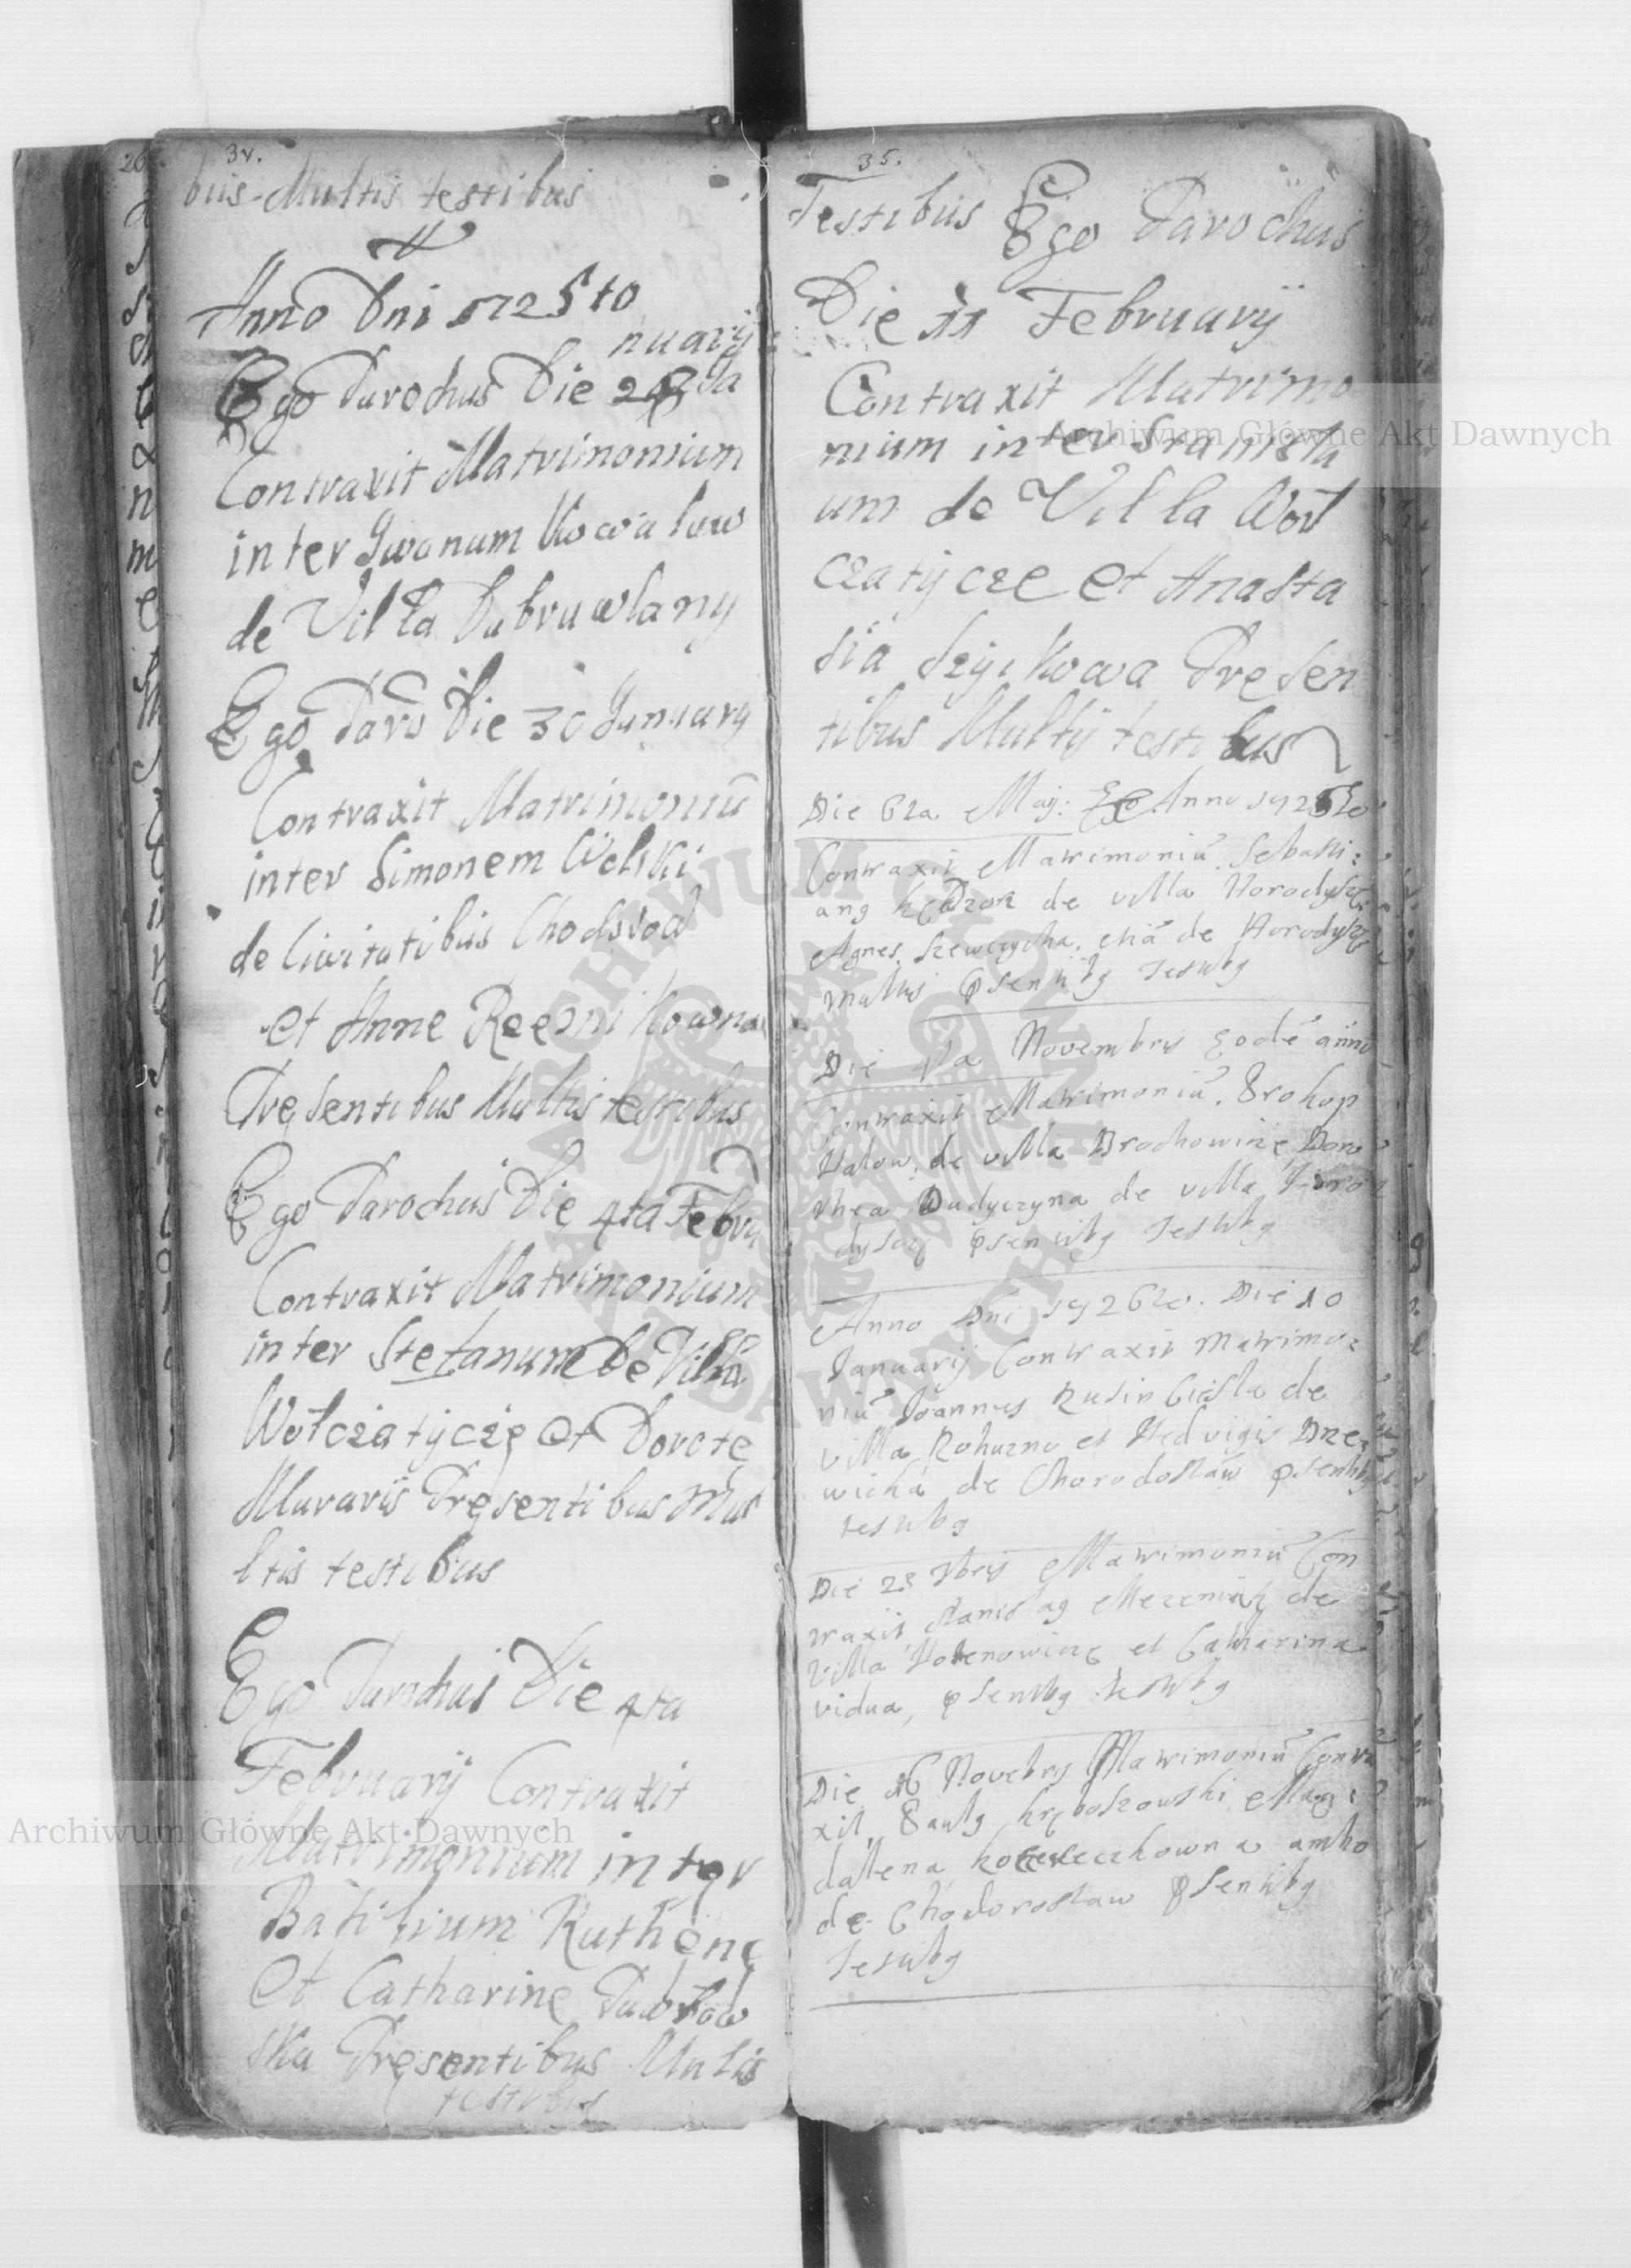 34.
bus Multis testibus
Anno Dni 1725to
nuarij
Ego Parochus Die 28 Ja
Contraxit Matrimonium
inter Iwanum Kowalow
de Villa Dubruwlany
Ego Paro Die 30 January
Contraxit Matrimoniũ
inter Simonem Wolski
de Civitatibus
et Anne Rzeznikowna
Presentibus Multis testibus
Ego Parochus Die 4ta Febru
Contraxit Matrimonium
inter Stefanum De Villa
Wołczatycze et Dorote
Muraris Presentibus Mul
ltis testibus
Ego Parochus Die 4ta
February Contraxit
Matrimonium inter
Basilium Ruthene
et Catharine Pawłow
ska Presentibus Multis
testibus
35.
Testibus Ego Parochus
Die 11 February
Contraxit Matrimo
nium inter Stanisla
um de Villa Woł
czatycze et Anasta
sia Szyikowa Presen
tibus Multis testibus
Die 6ta Maij: Anno 1725to
Contraxit Matrimoniũ Sebasti:
de villa Horodyszcz
Agnes Szewczycha, etiã de Horodyszcz
multis psentibg testibg
Die 1ma Novembris Eodẽ anno
Contraxit Matrimoniũ. Prokop
Hałow, de villa Brochowicze, Doro
thea Dudyczyna de villa Horo
dyszcz psentibg testibg
Anno Dni 1726to. Die 10
Januarij Contraxit Matrimo:
niũ Joannes Rusin Cieśla de
villa Rohuzno et Hedvigis Drze:
wicha de Chorodosław psentibg
testibg
Die 28 Matrimoniũ Con
traxit Stanislag de
villa et Catharina
vidua, psentibg testibg
Die 16 Novẽbrg Matrimoniũ Contra
xit, Paulg Mag:
dalena ambo
de Chodorosław psentibg
testibg
Archiwum Główne Akt Dawnych
Archiwum Główne Akt Dawnych
ARCHIWUM GŁÓWNE AKT DAWNYCH